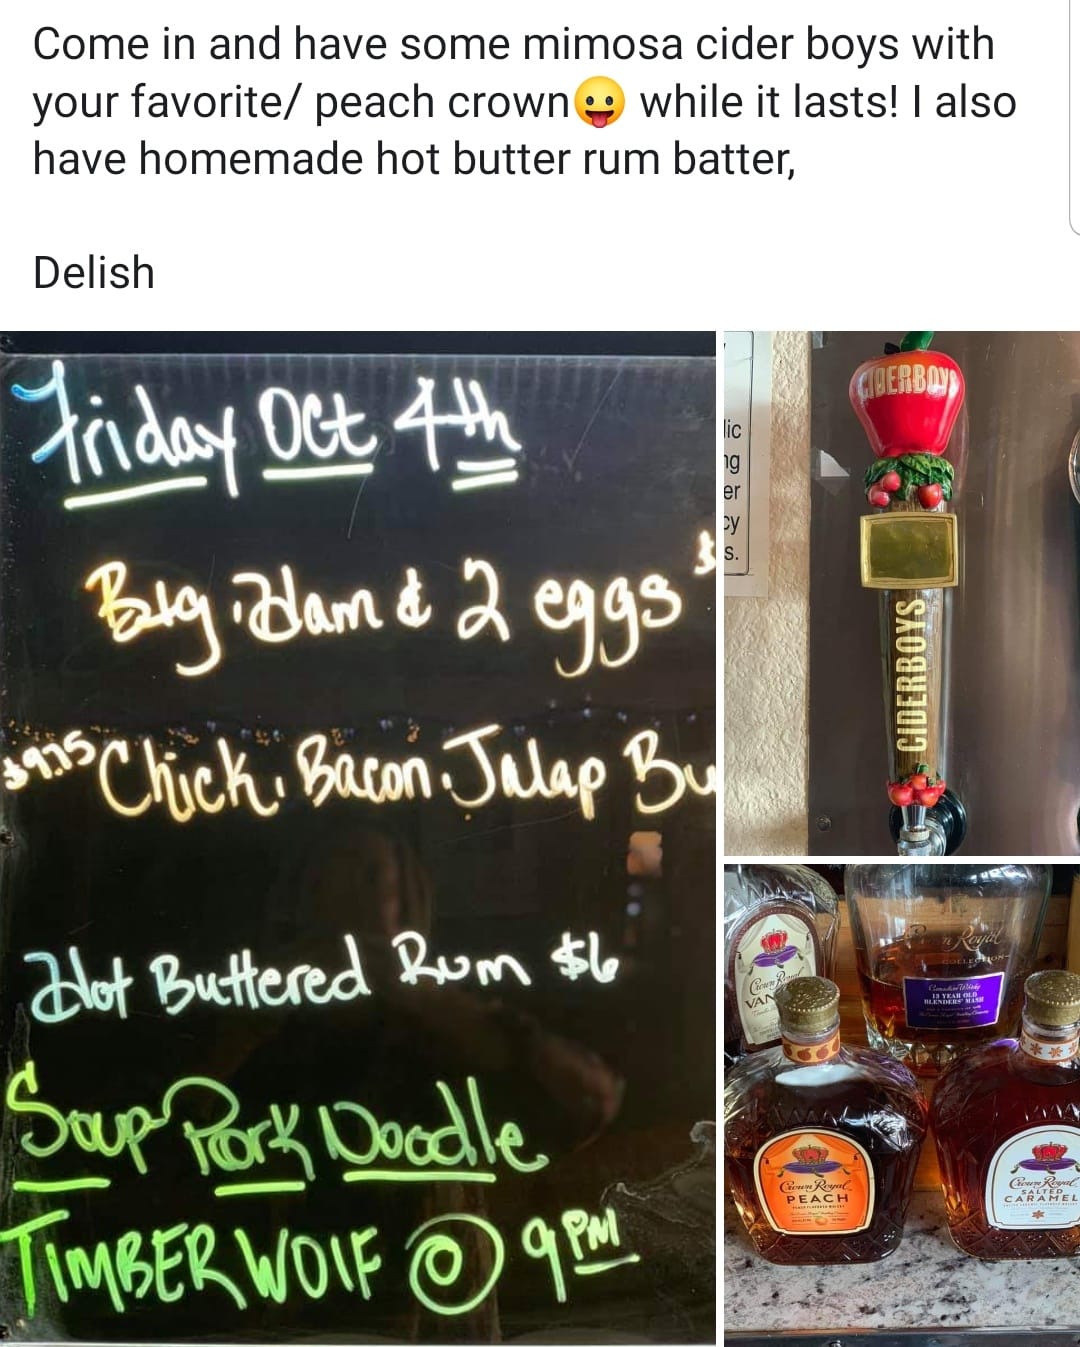 Come in and have some mimosa cider boys with
your favorite/ peach crown😛 while it lasts! I also
have homemade hot butter rum batter,
Delish
Friday Oct 4th
Big Ham & 2 eggs $
$9.75 Chick. Bacon. Jalap Bu
Hot Buttered Rum $6
Soup Pork Noodle
TIMBERWOlF @ 9PM
lic
ng
er
cy
s.
CIDERBOYS
CIDERBOYS
Crown Royal
VAN
Crown Royal
COLLECTION
Canadian Whisky
13 YEAR OLD
BLENDERS' MASH
Crown Royal
PEACH
Crown Royal
SALTED
CARAMEL